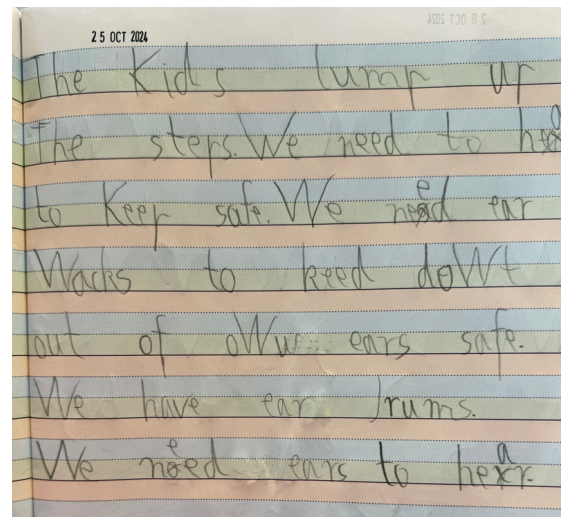 28 OCT 2024
25 OCT 2024
The Kids lump up
The steps. We need to hear
to Keep safe. We need ear
Wacks to keed doWt
out of oWu ears safe.
We have ear Jrums.
We need ears to hear.